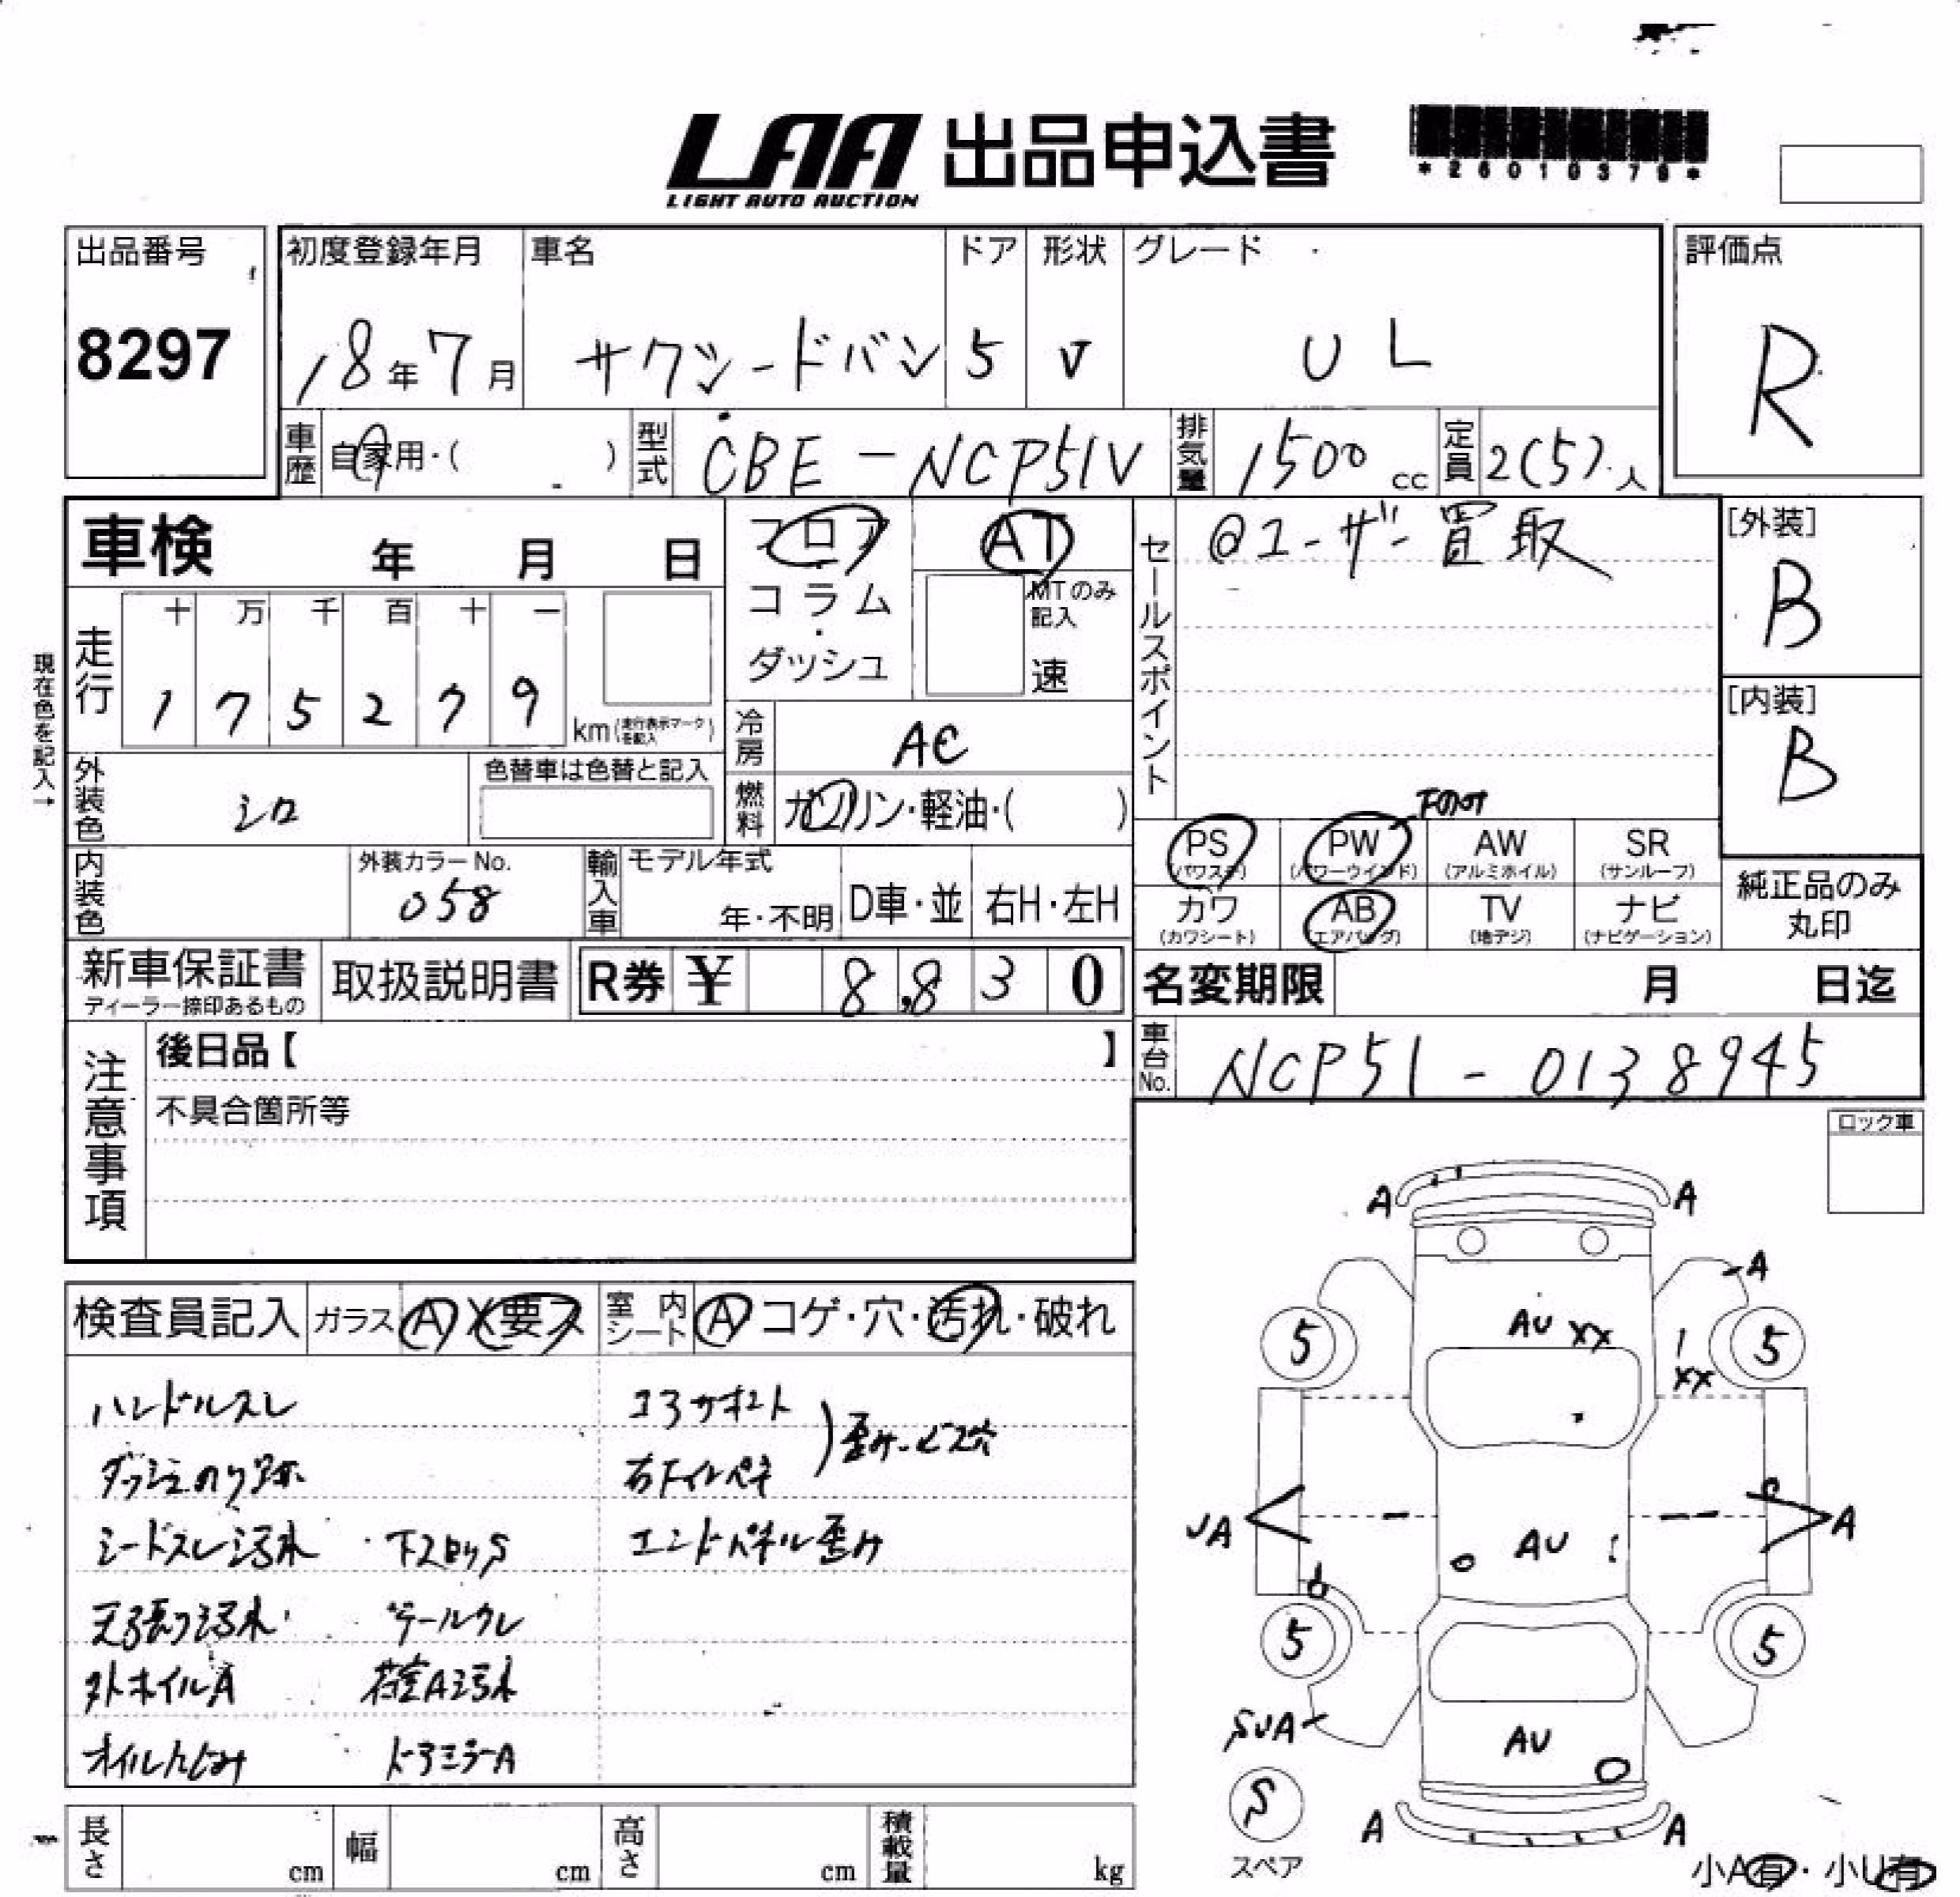 LAA 出品申込書
LIGHT AUTO AUCTION
*26010378*
出品番号
8297
初度登録年月
18年7月
車名
サクシードバン
ドア
5
形状
V
グレード
UL
評価点
R
車歴
自家用・( )
型式
CBE-NCP51V
排気量
1500 cc
定員
2(5)人
車検 年 月 日
フロア
コラム
・
ダッシュ
AT
MTのみ
記入
速
セールスポイント
@ユーザー買取
[外装]
B
[内装]
B
現在色を記入→
走行
十 万 千 百 十 一
1 7 5 2 7 9
km(走行表示マークを記入)
冷房
AC
外装色
シロ
色替車は色替と記入
燃料
ガソリン・軽油・( )
下のみ
PS
(パワステ)
PW
(パワーウインド)
AW
(アルミホイル)
SR
(サンルーフ)
カワ
(カワシート)
AB
(エアバッグ)
TV
(地デジ)
ナビ
(ナビゲーション)
純正品のみ
丸印
内装色
外装カラーNo.
058
輸入車
モデル年式
年・不明
D車・並
右H・左H
新車保証書
ディーラー捺印あるもの
取扱説明書
R券 ¥ 8,830
名変期限 月 日迄
車台No.
NCP51-0138945
注意事項
後日品【 】
不具合箇所等
ロック車
検査員記入
ガラス
A X 要ス
室内シート
A コゲ・穴・汚れ・破れ
ハンドルスレ
コアサポート
ダッシュのり跡
右テールパネ
)歪み、ビス穴
シートスレ汚れ
下スロッS
エンドパネル歪み
天張り汚れ
外ホイルA
荷室A汚れ
オイルにじみ
ドアミラーA
A
A
A
AU XX
XX
5
5
UA
A
AU
5
5
SUA
AU
S
スペア
A
A
小A有・小U有
長さ cm
幅 cm
高さ cm
積載量 kg